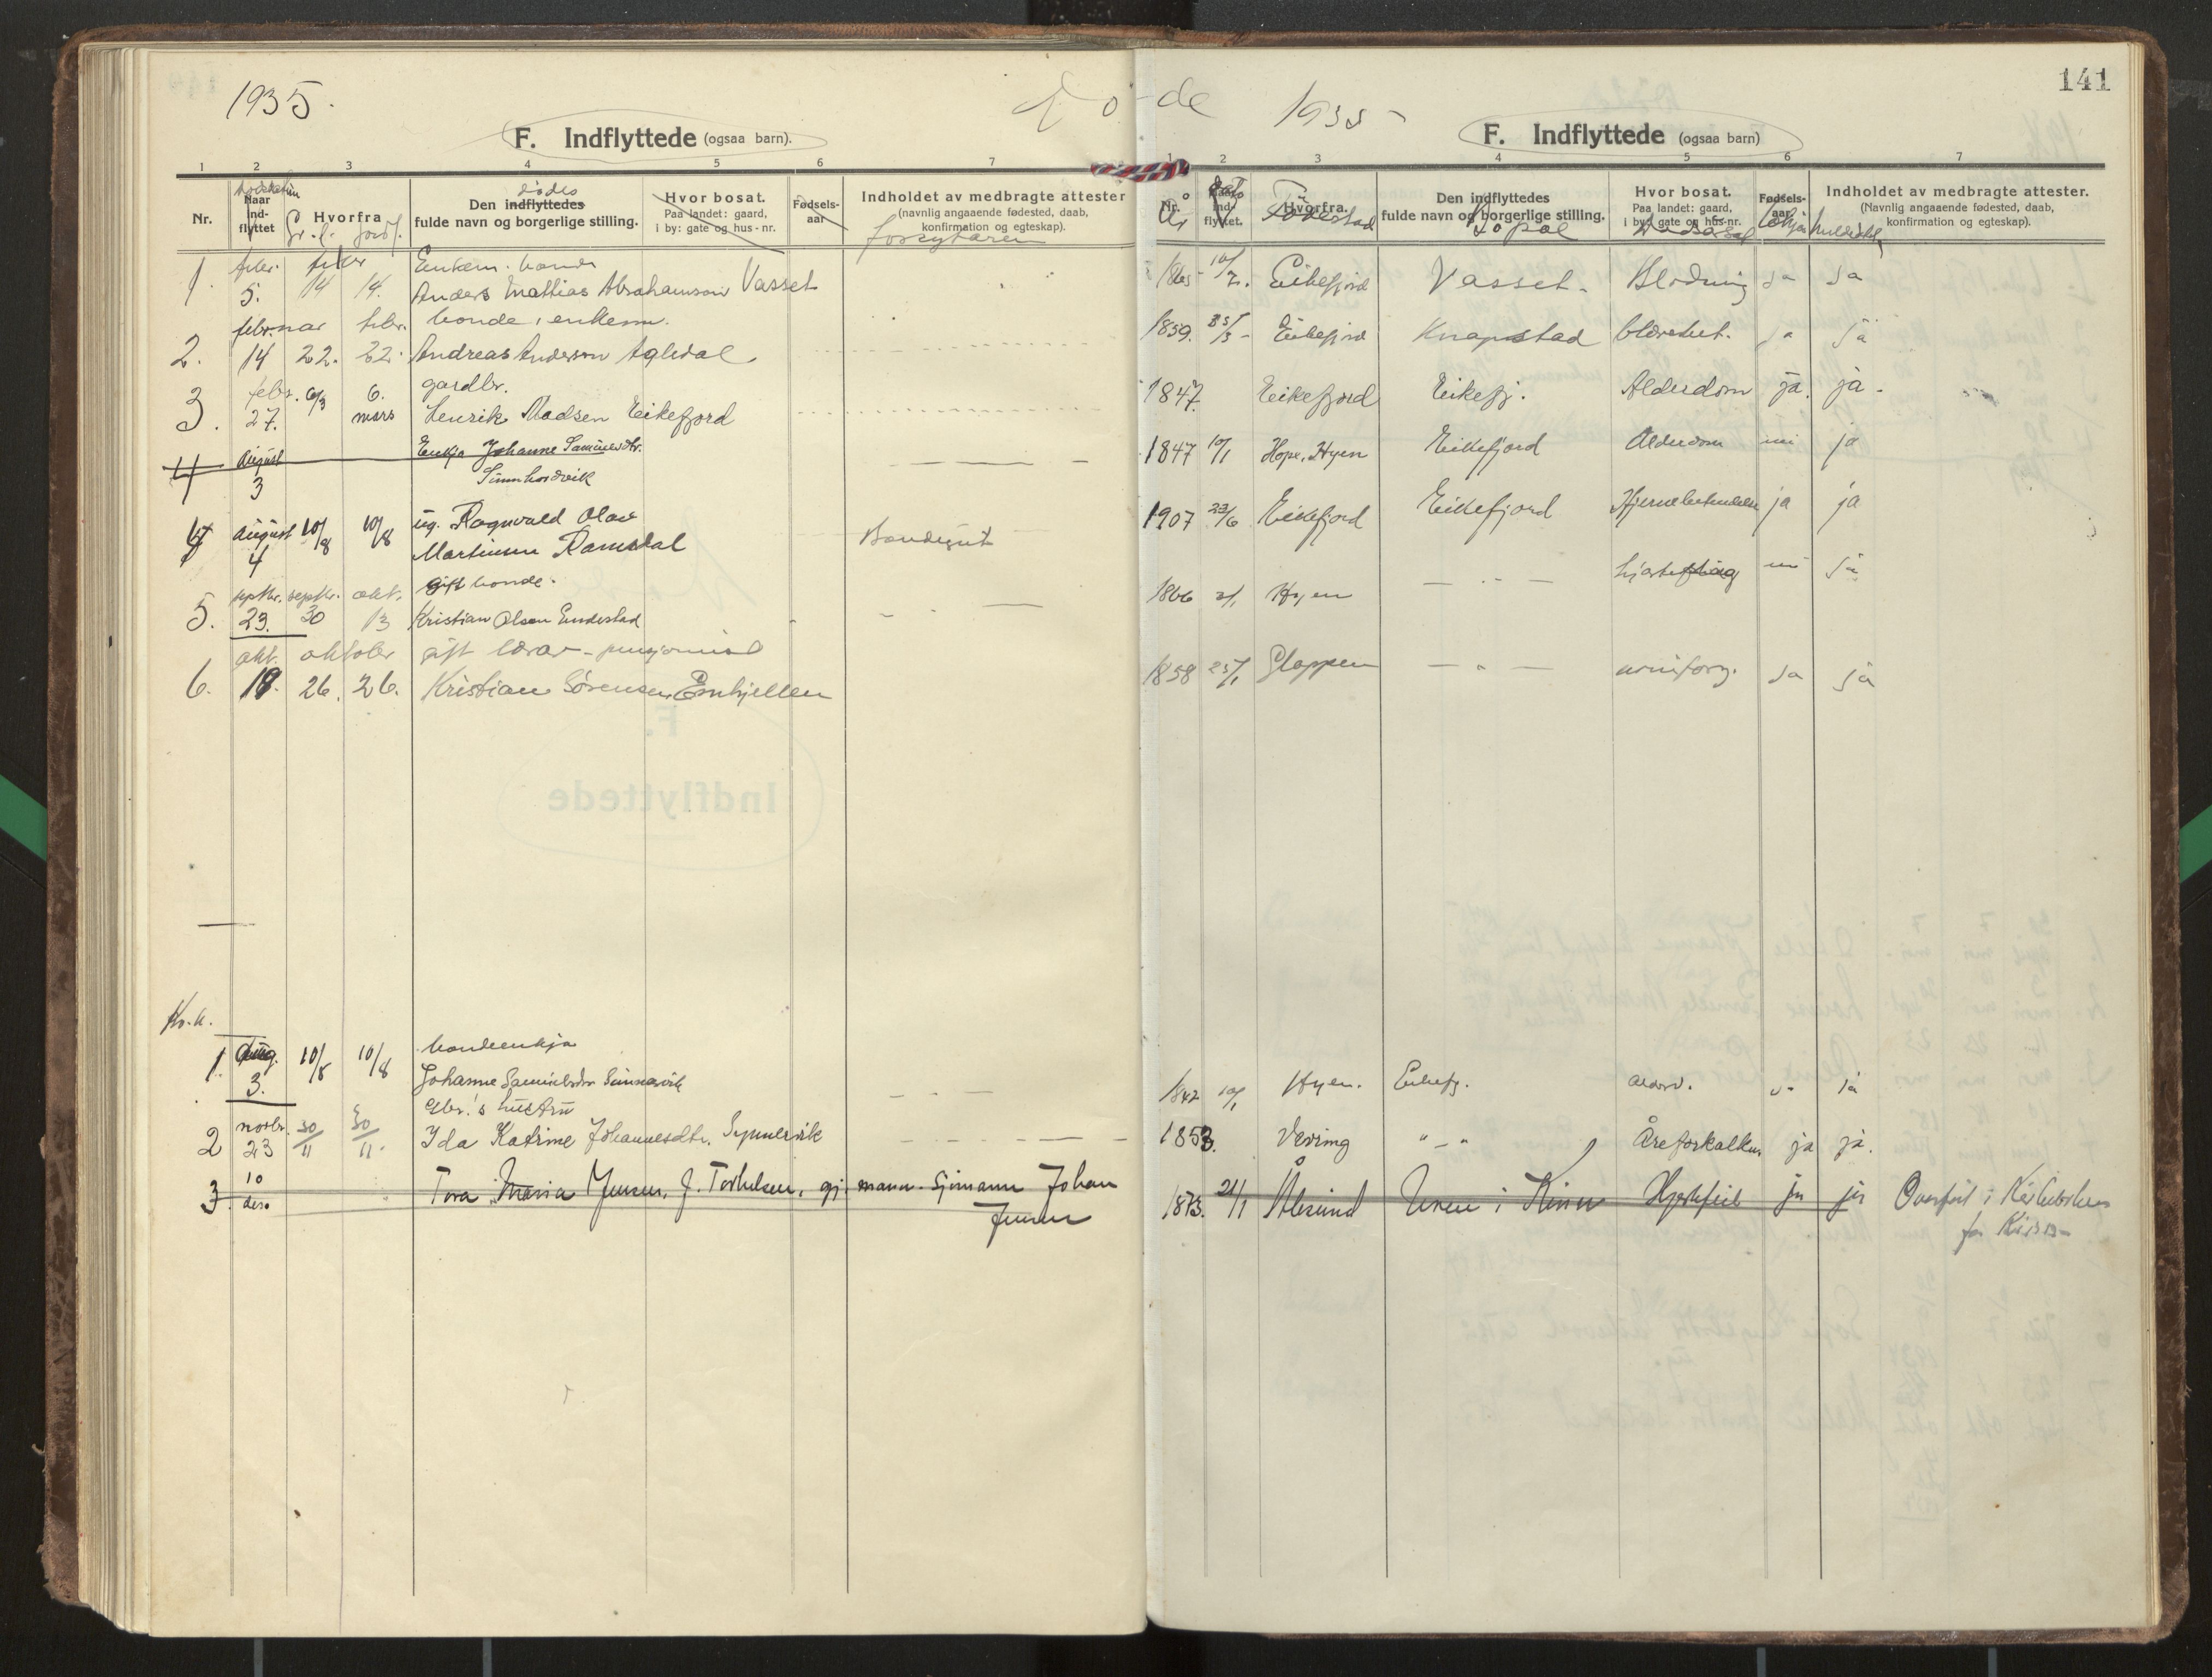 1935.
Dø-de 1935
141
F. Indflyttede (ogsaa barn).
1 2 3 4 5 6 7
Nr.
Naar ind-flyttet
Hvorfra
Gr.l. jordf.
dødes
Den indflyttedes
fulde navn og borgerlige stilling.
Hvor bosat.
Paa landet: gaard,
i by: gate og hus-nr.
Fødsels-aar
Indholdet av medbragte attester
(navnlig angaaende fødested, daab,
konfirmation og egteskap).
forsytaren
1. febr. febr Enkem. bonde
5. 14 14. Anders Mathias Abrahamson Vasset
februar febr. bonde, enkem.
2. 14 22. 22. Andreas Anderson Agledal
febr. 6/3 6. gardbr.
3. 27. mars Henrik Madsen Eikefjord
4 August Enkja Johanne Samuelsdtr.
3 Sunnhordvik
4 August 10/8 10/8 ug. Ragnvald Olav
4 Martinsen Ramsdal
septbr. septbr. okt. gift bonde.
5. 23. 30 13 Kristian Olsen Endestad
okt. oktober gift lærar - pensjonist
6. 18. 26. 26. Kristian Sørensen Enhjellen
F.
Indflyttede
Kv.k.
1 Aug. 10/8 10/8 bondeenkja
3. Johanne Samuelsdtr Sunnarvik
Gbr.'s hustru
2 novbr. 23 30/11 30/11. Ida Katrine Johannesdtr. Synnervik
3. 10 des. Tora Maria Jensen, f. Torkelsen, gj. mann. Sjømann Johan
Jensen
F. Indflyttede (ogsaa barn)
1 2 3 4 5 6 7
Nr.
År
Naar ind-flyttet.
Hvorfra.
Fødestad
Den indflyttedes
fulde navn og borgerlige stilling.
Hvor bosat.
Paa landet: gaard,
i by: gate og hus-nr.
Fødsels-aar
Indholdet av medbragte attester.
(Navnlig angaaende fødested, daab,
konfirmation og egteskap).
1865 10/2. Eikefjord Vasset. Blødning ja ja
1859. 25/3 - Eikefjord Knapstad ja ja
1847. Eikefjord Eikefj. Alderdom ja. ja.
1847 10/1 Hope, Hyen Eikefjord Alderdom nei ja
1907 23/6 Eikefjord Eikefjord ja ja
1866 2/1 Hyen — " — hjarteslag nei ja
1858 25/1 Gloppen — " — ja ja
1842 10/1 Hyen. Eikefj. Alderd. ja ja
1853. Vevring " — " Åreforkalkn. ja ja.
1873. 21/1 Ålesund i Kinn Hjertefeil ja ja Overført i
for Kinn